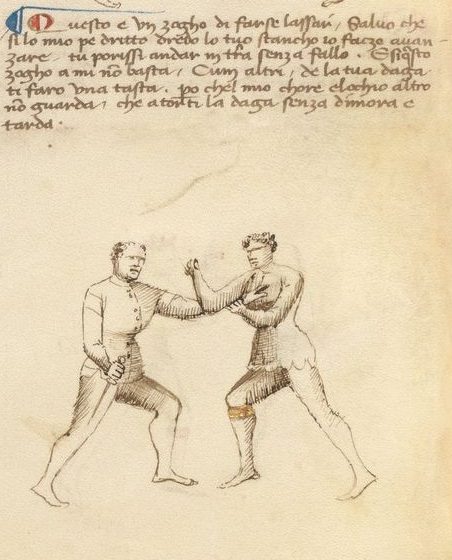 Questo e un zogho di farse lassar, Salvo che
si lo mio pe dritto dredo lo tuo stancho io faço avan-
zare, tu porissi andar in t'ra senza fallo. E si q̃sto
zogho a mi nõ basta, Cum altri, de la tua daga
ti faro una tasta. p̱o chel mio chore e lochio altro
nõ guarda, che a torti la daga senza dimora e
tarda.